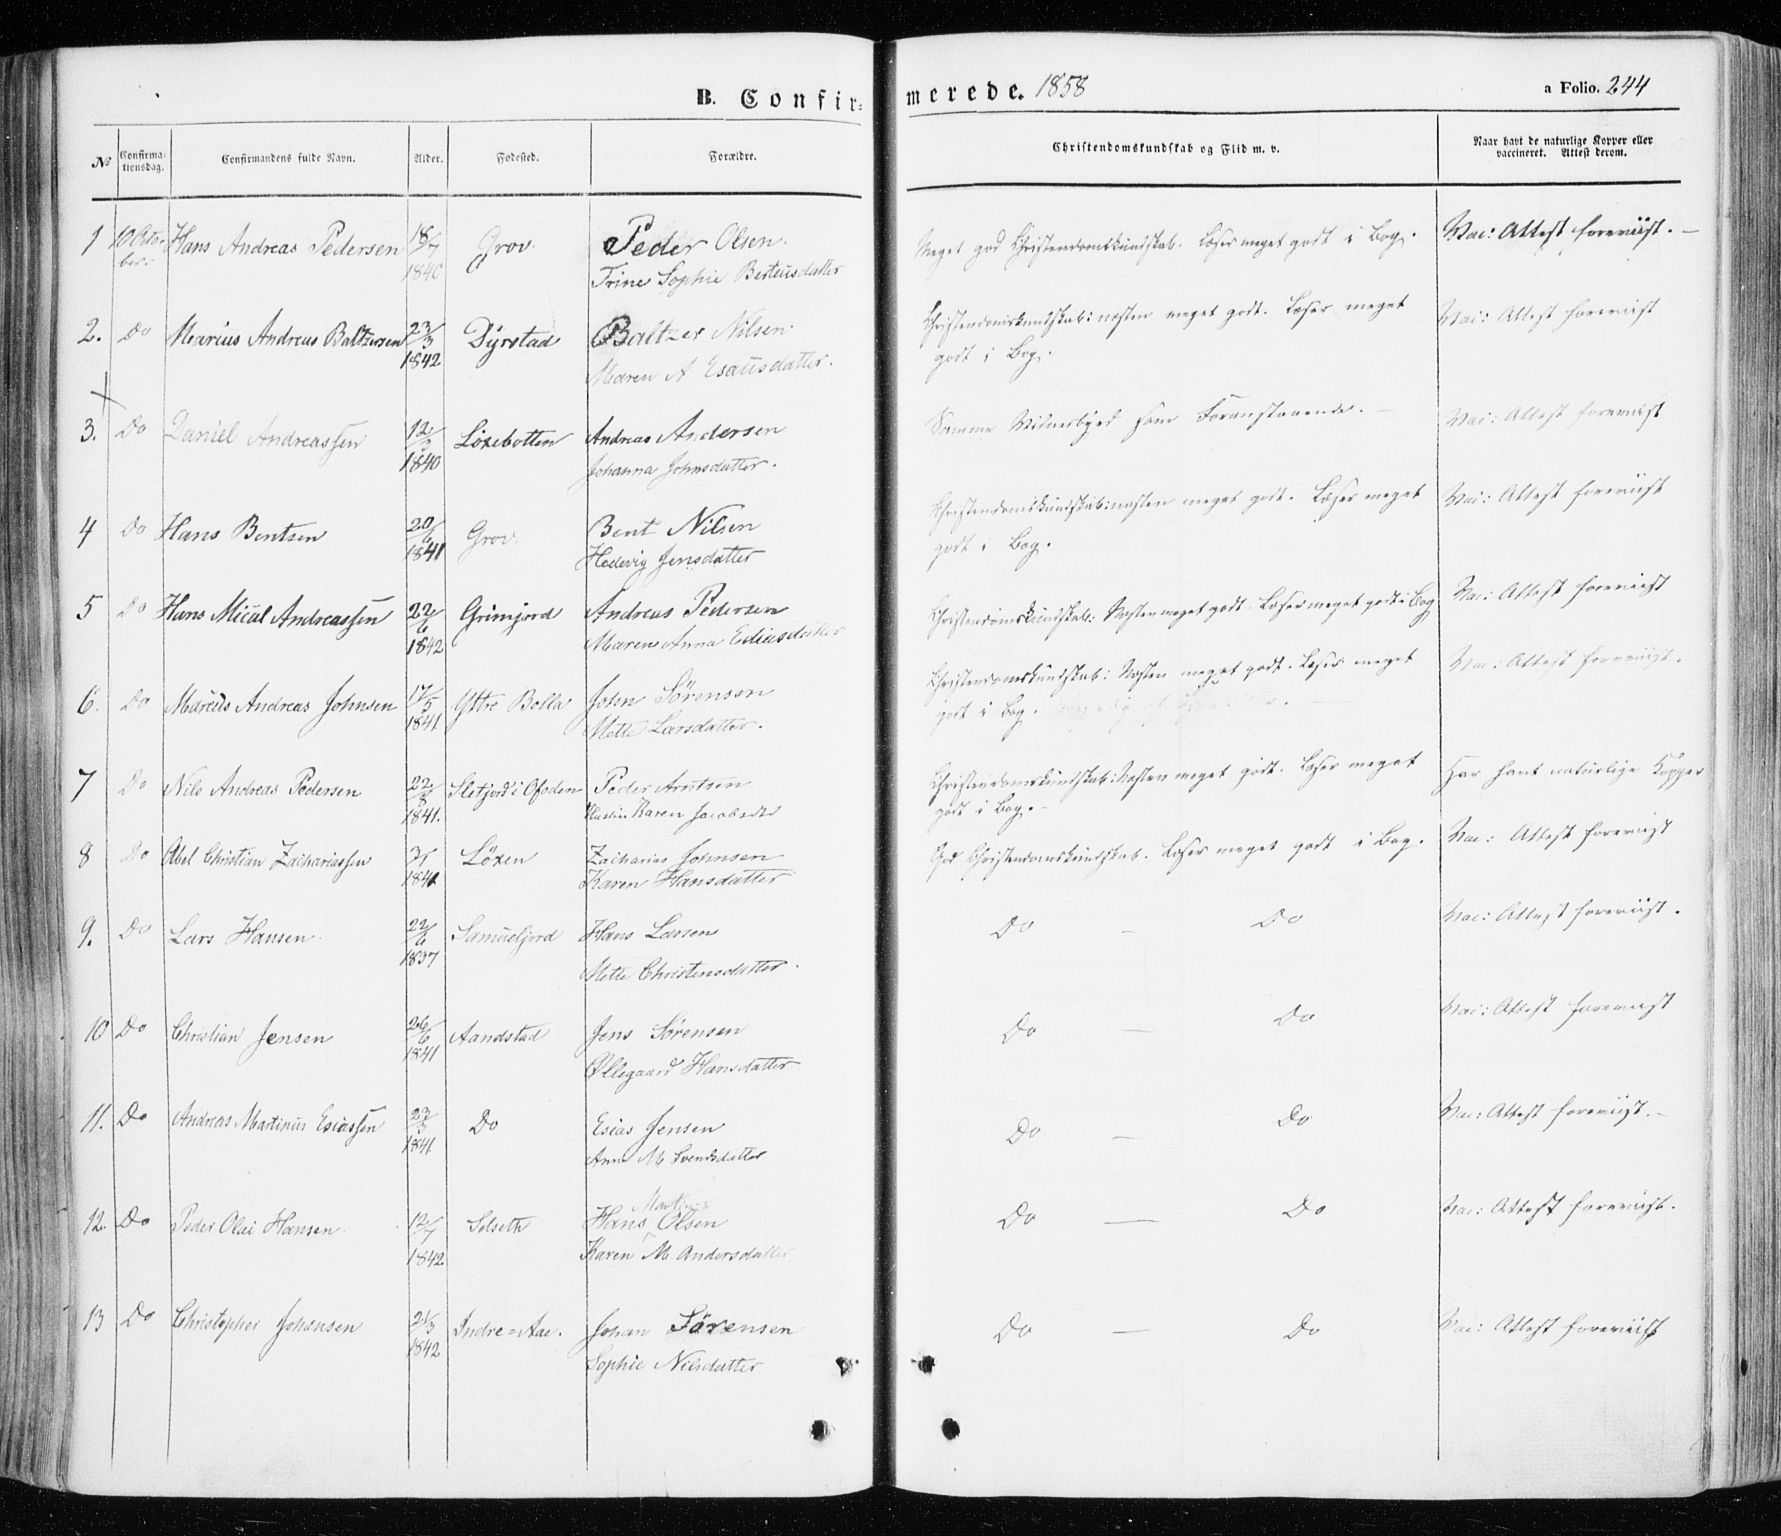 B. Confirmerede. 1858
a Folio. 244
No
Confirmationsdag.
Confirmandens fulde Navn.
Alder.
Fødested.
Forældre.
Christendomskundskab og Flid m. v.
Naar havt de naturlige Kopper eller vaccineret. Attest derom.
1 10 Octo- Hans Andreas Pedersen 18/7 Grov. Peder Olsen. Meget god Christendomskundskab. Læser meget godt i Bog. Vac: Attest foreviist. —
ber: 1840 Trine Sophie Berteusdatter
2. Do Marius Andreas Baltzersen 23/3 Dyrstad Baltzer Nilsen Christendomskundskab: næsten meget godt. Læser meget Vac: Attest foreviist
1842 Maren A Esausdatter. godt i Bog.
3. Do Daniel Andreassen 12/3 Löxebotten Andreas Andersen Samme Vidnesbyrd som Foranstaaende. — Vac: Attest foreviist
1840 Johanna Johnsdatter.
4 Do Hans Bentsen 20/6 Grov. Bent Nilsen Christendomskundskab: næsten meget godt. Læser meget Vac: Attest foreviist
1841 Hedevig Jensdatter godt i Bog.
5 Do Hans Mical Andreassen 22/6 Grimjord Andreas Pedersen Christendomskundskab: Næsten meget godt. Læser meget godt i Bog Vac: Attest foreviist
1842 Maren Anna Ediasdatter
6. Do Marius Andreas Johnsen 17/5 Yttre Bolla John Sörensen Christendomskundskab: Næsten meget godt. Læser meget Vac: Attest foreviist.
1841 Mette Larsdatter. godt i Bog.
7 Do Nils Andreas Pedersen 22/8 Sletjord i Ofoden Peder Arntsen Christendomskundskab: Næsten meget godt. Læser meget Har havt naturlige Kopper
1841. Karen Jacobsdtr godt i Bog. —
8 Do Abel Christian Zachariassen Löxen Zacharias Johnsen God Christendomskundskab. Læser meget godt i Bog. Vac: Attest foreviist
1841 Karen Hansdatter
9. Do Lars Hansen 22/6 Samueljord Hans Larsen Do — Do Vac: Attest foreviist.
1837 Mette Christensdatter.
10 Do Christian Jensen 26/6 Aandstad Jens Sörensen Do — Do Vac: Attest foreviist
1841 Øllegaard Hansdatter
11. Do Andreas Martinus Esiassen 23/3 Do Esias Jensen Do — Do Vac: Attest foreviist. —
1841 Anne M Svendsdatter
12. Do Peder Olai Hansen. 12/7 Selseth Hans Olsen Do — Do Vac: Attest foreviist.
1842 Karen M Andersdatter
13 Do Christopher Johansen 21/3 Indre=Aae. Johan Sörensen Do — Do Vac: Attest foreviist
1842 Sophie Nilsdatter